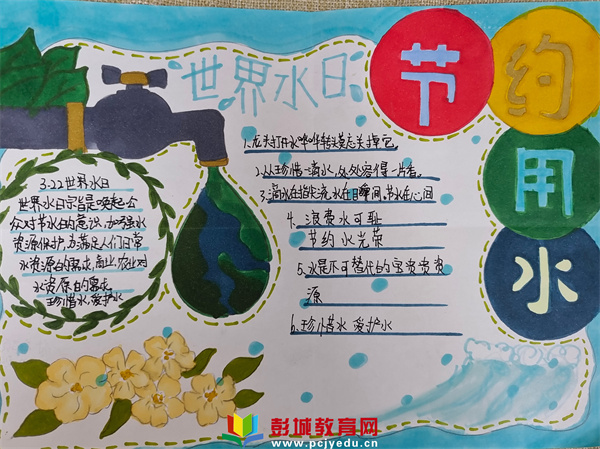 世界水日
节约
用
水
3.22世界水日
世界水日宗旨是唤起公
众对节水的意识,加强水
资源保护,为满足人们日常
水资源的需求,商业,农业对
水资源的需求
珍惜水,爱护水
1.龙头打开水哗哗转
2.从珍惜一滴水
3.滴水在指尖流,水在瞬间,节水在心间
4.浪费水可耻
节约水光荣
5.水是不可替代的宝贵资
源
6.珍惜水 爱护水
彭城教育网
www.pcjyedu.cn